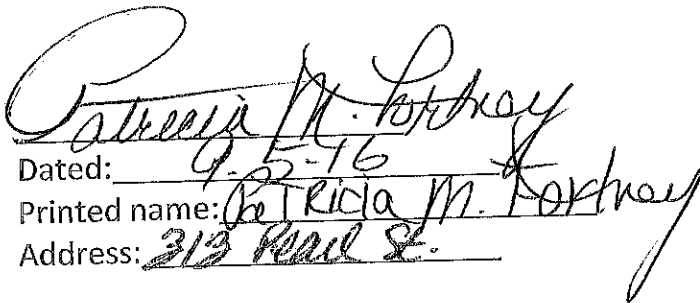 Patricia M. Fortney
Dated: 9-5-16
Printed name: Patricia M. Fortney
Address: 313 Pearl St.